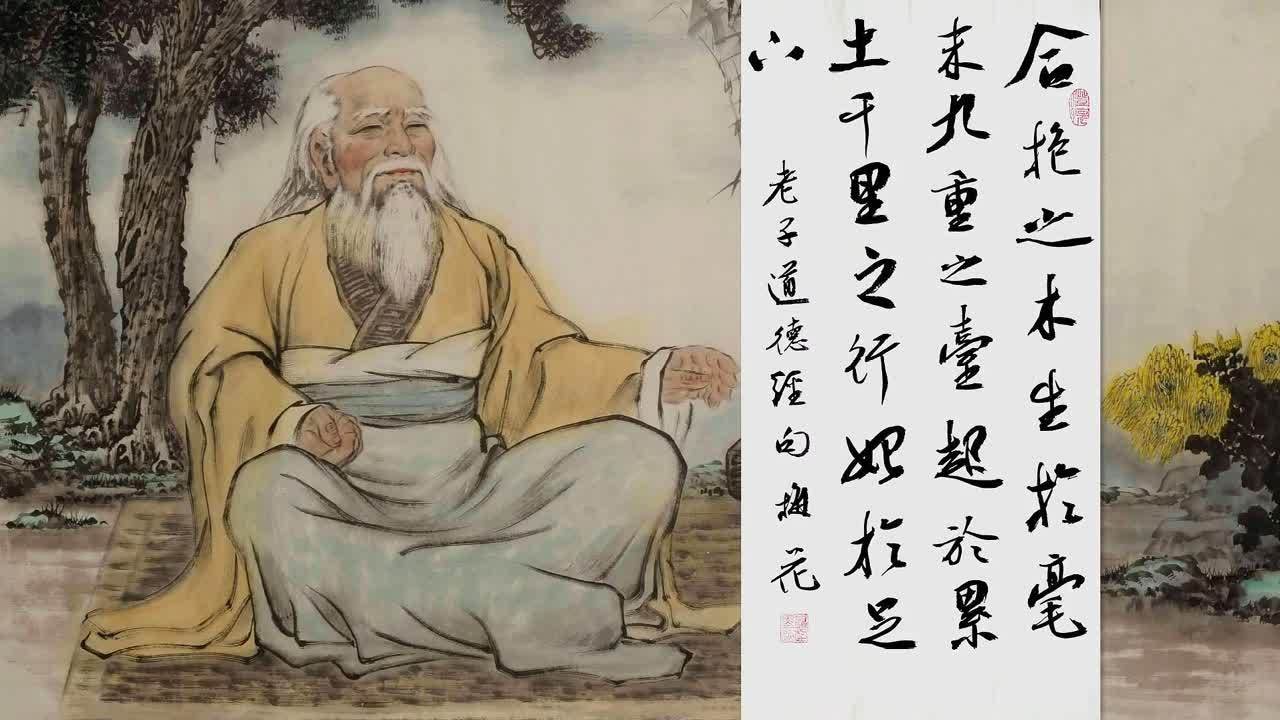 合抱之木生於毫
末九重之臺起於累
土千里之行始於足
下
老子道德經句 花